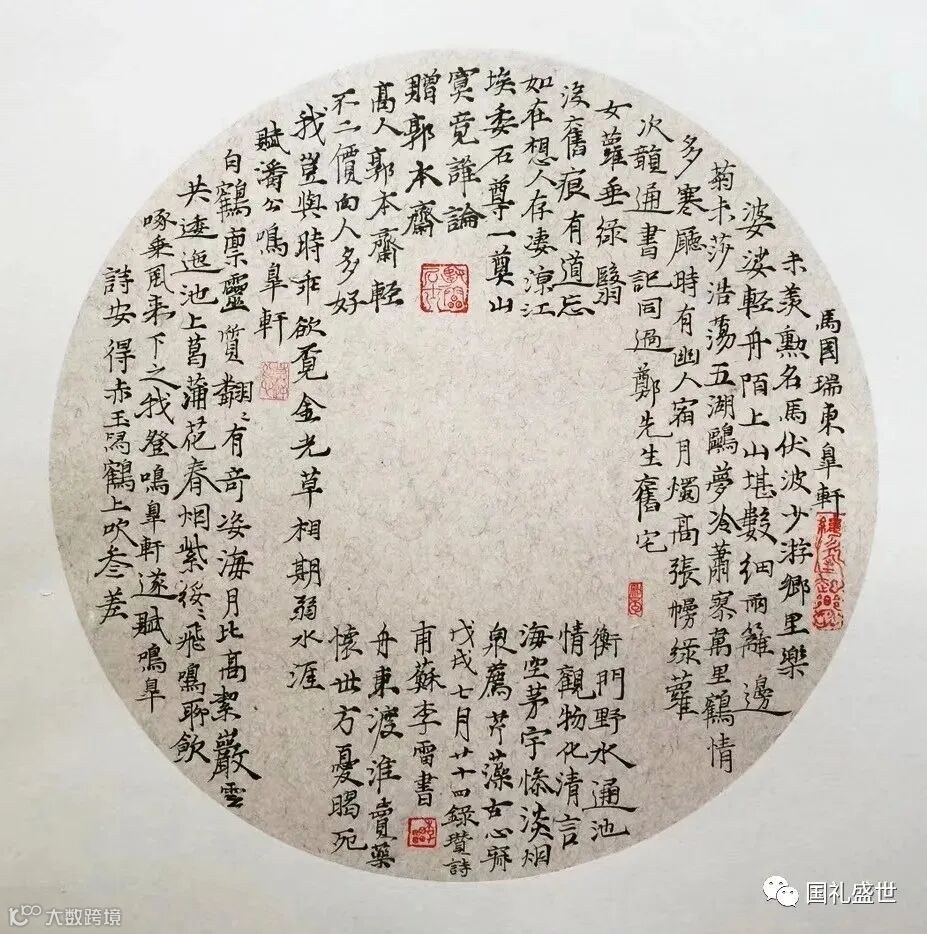 馬國瑞東皐軒
未羨勲名馬伏波少游鄉里樂
婆娑輕舟陌上山堪數細雨籬邊
菊未莎浩蕩五湖鷗夢冷蕭寥萬里鶴情
多寒廳時有幽人宿月燭高張幔綠蘿
次韻通書記同過鄭先生舊宅
女蘿垂綠翳衡門野水通池
沒舊痕有道忘情觀物化清言
如在想人存凄凉江海空茅宇慘淡烟
埃委石尊一奠山泉薦芹藻古心寥
寞竟誰論
贈郭本齋
高人郭本齋輕舟東渡淮賣藥
不二價向人多好懷世方憂暍死
我豈與時乖欲覓金光草相期弱水涯
賦潘公鳴皐軒
白鶴禀靈質翩〻有奇姿海月比高潔巖雲
共逶迤池上菖蒲花春烟紫綬〻飛鳴聊飲
啄乘風來下之我登鳴皐軒遂賦鳴皐
詩安得赤玉舄鶴上吹叁差
戊戌七月廿十四錄贊詩
甫蘇李雷書
国礼盛世
大数跨境